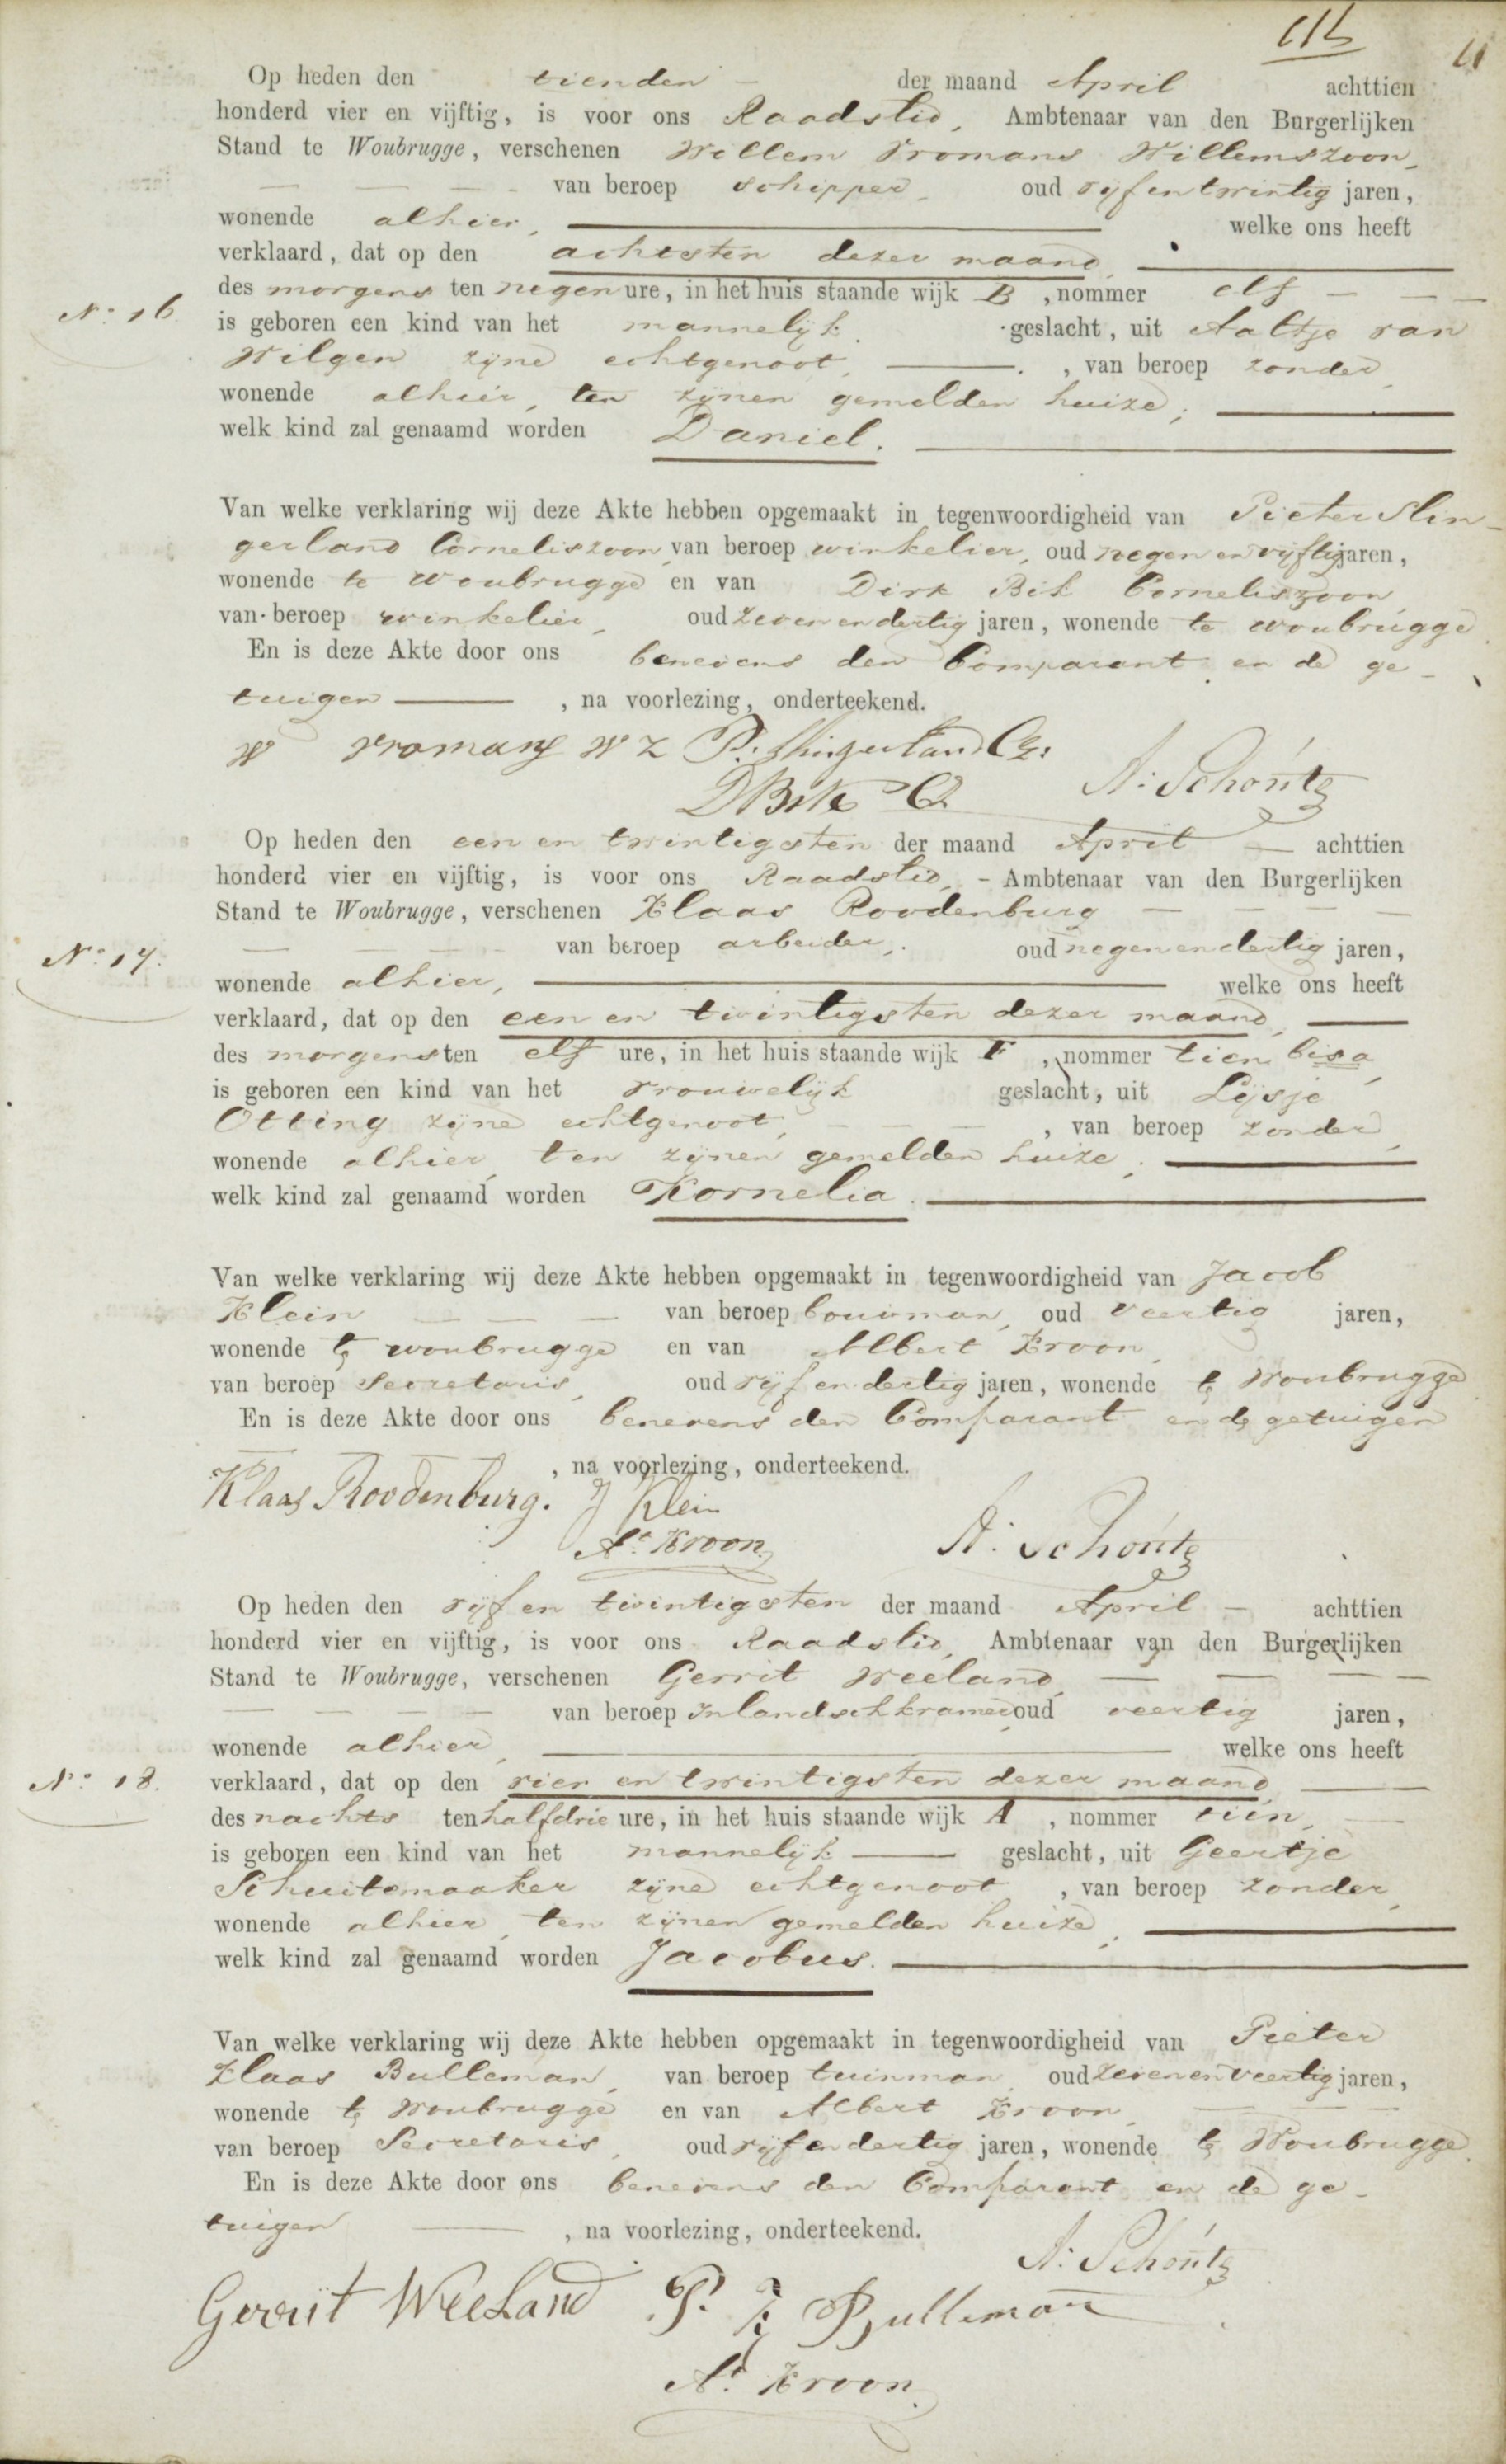 Op heden den tienden – der maand April achttien
honderd vier en vijftig, is voor ons Raadslid, Ambtenaar van den Burgerlijken
Stand te Woubrugge, verschenen Willem Vromans Willemszoon,
van beroep schipper, oud vijf en twintig jaren,
wonende alhier, welke ons heeft
verklaard, dat op den achtsten dezer maand,
No. 16.
des morgens ten negen ure, in het huis staande wijk B , nommer elf
is geboren een kind van het mannelijk geslacht, uit Aaltje van
Wilgen zijne echtgenoot, , van beroep zonder,
wonende alhier, ten zijnen gemelden huize;
welk kind zal genaamd worden Daniel.
Van welke verklaring wij deze Akte hebben opgemaakt in tegenwoordigheid van Pieter Slin-
gerland Corneliszoon, van beroep winkelier, oud negen en vijftig jaren,
wonende te Woubrugge en van Dirk Bik Corneliszoon,
van beroep winkelier, oud zeven en dertig jaren, wonende te Woubrugge.
En is deze Akte door ons benevens den Comparant en de ge-
tuigen , na voorlezing, onderteekend.
W Vromans WZ P. Slingerland Cz:
D Bik Cz A: Schoutz
Op heden den een en twintigsten der maand April – achttien
honderd vier en vijftig, is voor ons Raadslid, – Ambtenaar van den Burgerlijken
Stand te Woubrugge, verschenen Klaas Roodenburg
No. 17.
van beroep arbeider, oud negen en dertig jaren,
wonende alhier, welke ons heeft
verklaard, dat op den een en twintigsten dezer maand,
des morgens ten elf ure, in het huis staande wijk F , nommer tien bisa,
is geboren een kind van het vrouwelijk geslacht, uit Lijsje
Otting zijne echtgenoot, , van beroep zonder,
wonende alhier, ten zijnen gemelden huize;
welk kind zal genaamd worden Kornelia.
Van welke verklaring wij deze Akte hebben opgemaakt in tegenwoordigheid van Jacob
Klein van beroep bouwman, oud veertig jaren,
wonende te Woubrugge en van Albert Kroon,
van beroep Secretaris, oud vijf en dertig jaren, wonende te Woubrugge
En is deze Akte door ons benevens den Comparant en de getuigen
, na voorlezing, onderteekend.
Klaas Roodenburg. J Klein
At. Kroon. A: Schoutz
Op heden den vijf en twintigsten der maand April – achttien
honderd vier en vijftig, is voor ons Raadslid, Ambtenaar van den Burgerlijken
Stand te Woubrugge, verschenen Gerrit Weeland,
van beroep Inlandsch kramer, oud veertig jaren,
wonende alhier, welke ons heeft
No. 18.
verklaard, dat op den vier en twintigsten dezer maand
des nachts ten half drie ure, in het huis staande wijk A , nommer tien,
is geboren een kind van het mannelijk geslacht, uit Geertje
Schuitemaaker zijne echtgenoot , van beroep zonder,
wonende alhier, ten zijnen gemelden huize;
welk kind zal genaamd worden Jacobus.
Van welke verklaring wij deze Akte hebben opgemaakt in tegenwoordigheid van Pieter
Klaas Bulleman, van beroep tuinman, oud zeven en veertig jaren,
wonende te Woubrugge en van Albert Kroon,
van beroep Secretaris, oud vijf en dertig jaren, wonende te Woubrugge.
En is deze Akte door ons benevens den Comparant en de ge-
tuigen , na voorlezing, onderteekend.
A: Schoutz
Gerrit Weeland P. K Bulleman
At. Kroon.